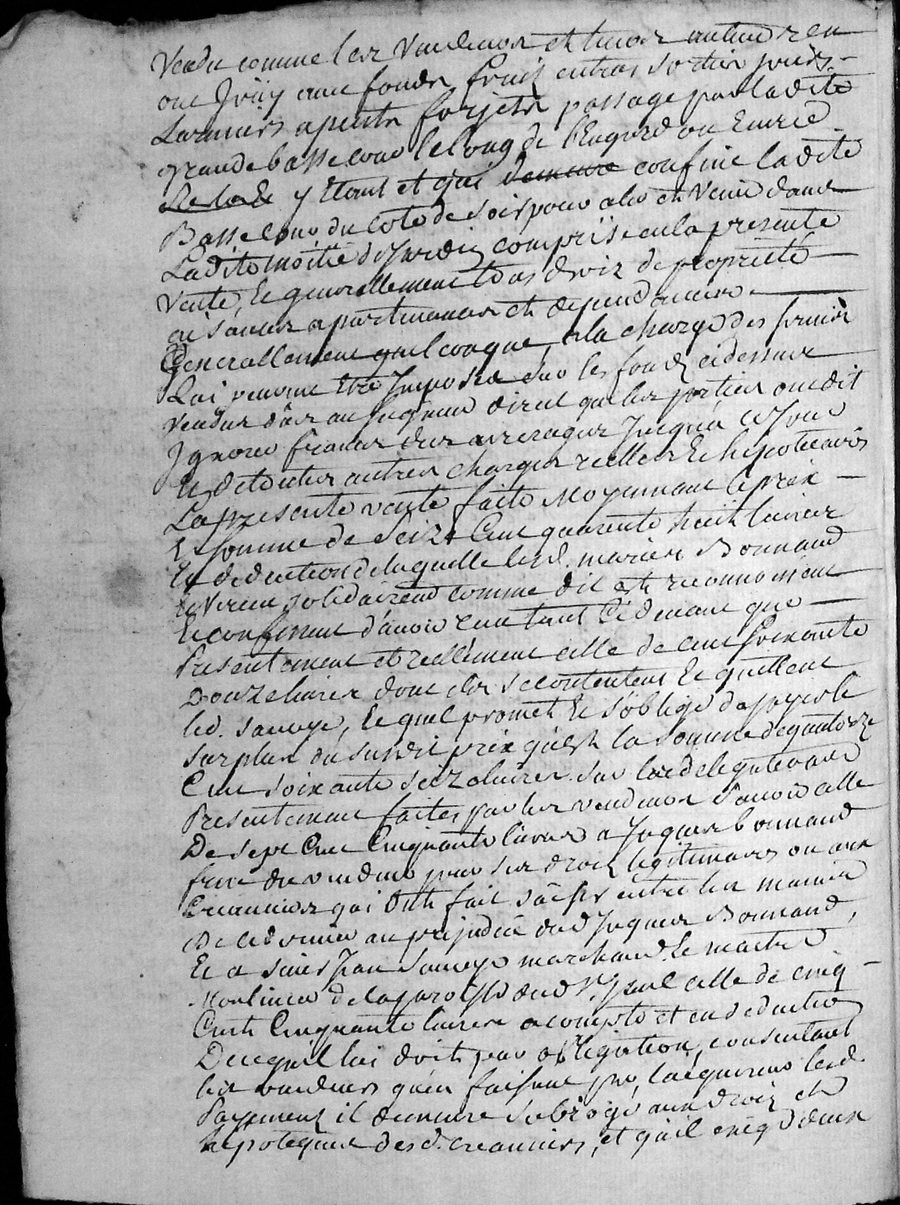 Vendu comme les Vendeurs et leurs auteurs en
ont Jouy aux fonds fruits entrées sorties puids
Larmiers a pente forjets passage par la dite
grande basse cour le long de l'Engard ou Ecurie
y Etant et qui demeure confine la dite
Basse Cour du coté de soir pour aler et Venir dans
La dite moitié de Jardin comprise en la presente
Vente, Et generallement tous droix de propriété
aisances apartenances et dependances
Generallement quelconque, a la charge des servis
Qui peuvent Etre Imposés sur les fonds cidessus
Vendus dûs au seigneur direct que les parties ont dit
Ignorer francs des arrerages Jusqu'a ce Jour
Et de toutes autres charges reelles Et hipotecaires
La presente vente faite Moyennant le prix
Et somme de Seize Cent quarante huit livres
En deduction de laquelle lesd. mariés Bonnand
et solidairement comme dit est reconnoissent
Et confessent d'avoir eu tant cidevant que
Presentement et reellement celle de cent soixante
Douze livres dont ils se contentent Et quittent
led. sauvage, Lequel promet Et s'oblige de payer le
surplus du susdit prix qu'est la somme de quatorze
Cent soixante seize livres sur les delegations
Presentement faites par les vendeurs savoir celle
De sept Cent Cinquante livres a Jaques bonnand
frere du vendeur pour ses droix legitimaires ou aux
Creanciers qui ont fait saisir entre les mains
De ce dernier au prejudice dud Jaques Bonnand,
Et a sieur Jean sauvage marchand Et maitre
Moulinier de la paroisse dud St. paul celle de cinq
Cents Cinquante livres acompte et en deduction
De ce qu'il lui doit par obligation, consentant
les vendeurs qu'en faisant par l'acquereur lesd.
Payements il demeure subrogé aux droix et
hipoteques desd. creanciers, et qu'il exige d'eux